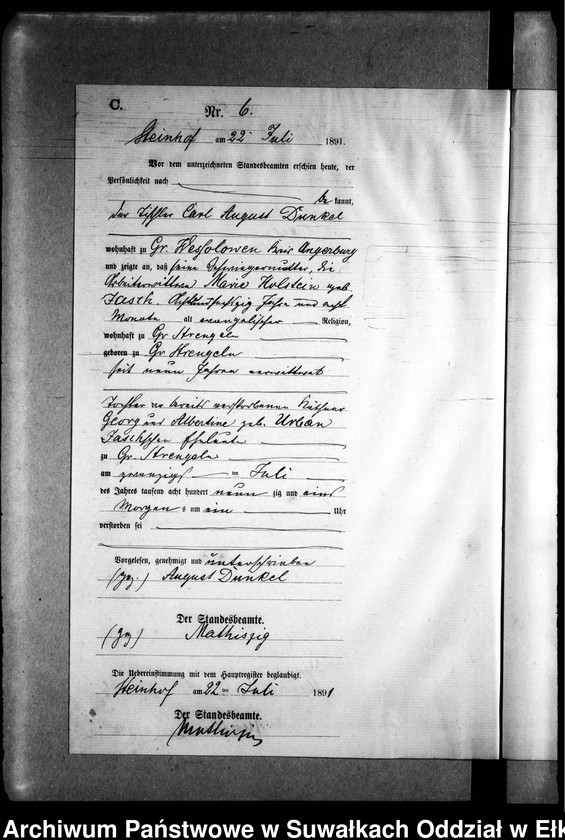 C.
Nr. 6.
Steinhof am 22 Juli 1891.
Vor dem unterzeichneten Standesbeamten erschien heute, der
Persönlichkeit nach
be kannt,
der Tischler Carl August Dunkel
wohnhaft zu Gr. Wessolowen Kreis Angerburg
und zeigte an, daß seine Schwiegermutter, die
Arbeiterwittwe Marie Holstein geb.
Jasch. Achtundfünfzig Jahre und acht
Monate alt evangelischer Religion,
wohnhaft zu Gr Strengeln
geboren zu Gr Strengeln
seit neun Jahren verwittwet
Tochter der bereits verstorbenen
Georg und Albertine geb. Urban
Jaschschen Eheleute
zu Gr. Strengeln
am zwanzigst im Juli
des Jahres tausend acht hundert neun zig und eins
Morgen s um ein Uhr
verstorben sei
Vorgelesen, genehmigt und unterschrieben
(gez.) August Dunkel
Der Standesbeamte.
(gez) Mathiszig
Die Uebereinstimmung mit dem Hauptregister beglaubigt.
Steinhof am 22 ten Juli 1891
Der Standesbeamte.
Mathiszig
Archiwum Państwowe w Suwałkach Oddział w Ełk